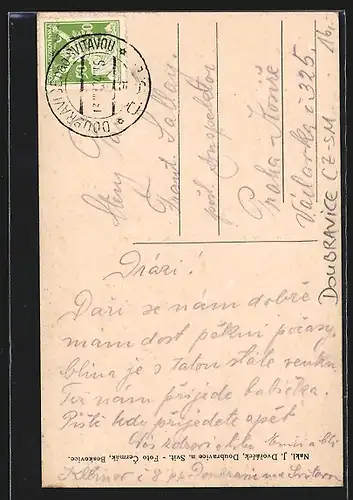 DOUBRAVICE nad SVITAVOU
Ctěný P.
Frant.
pošt. inspektor
Praha - Košíře
Václavka č. 325.
16,-
DOUBRAVICE CZ-SM
Drazí!
Daří se nám dobře
mám dost pěkné počasy
je s Tatou stále venku
nám přijede babička.
Pište kdy přijedete opět
Vás zdraví
č 8 p. Doubravice n. Svitavou
Nakl. J. Dvořáček, Doubravice n. Svit. - Foto Čermák, Boskovice.